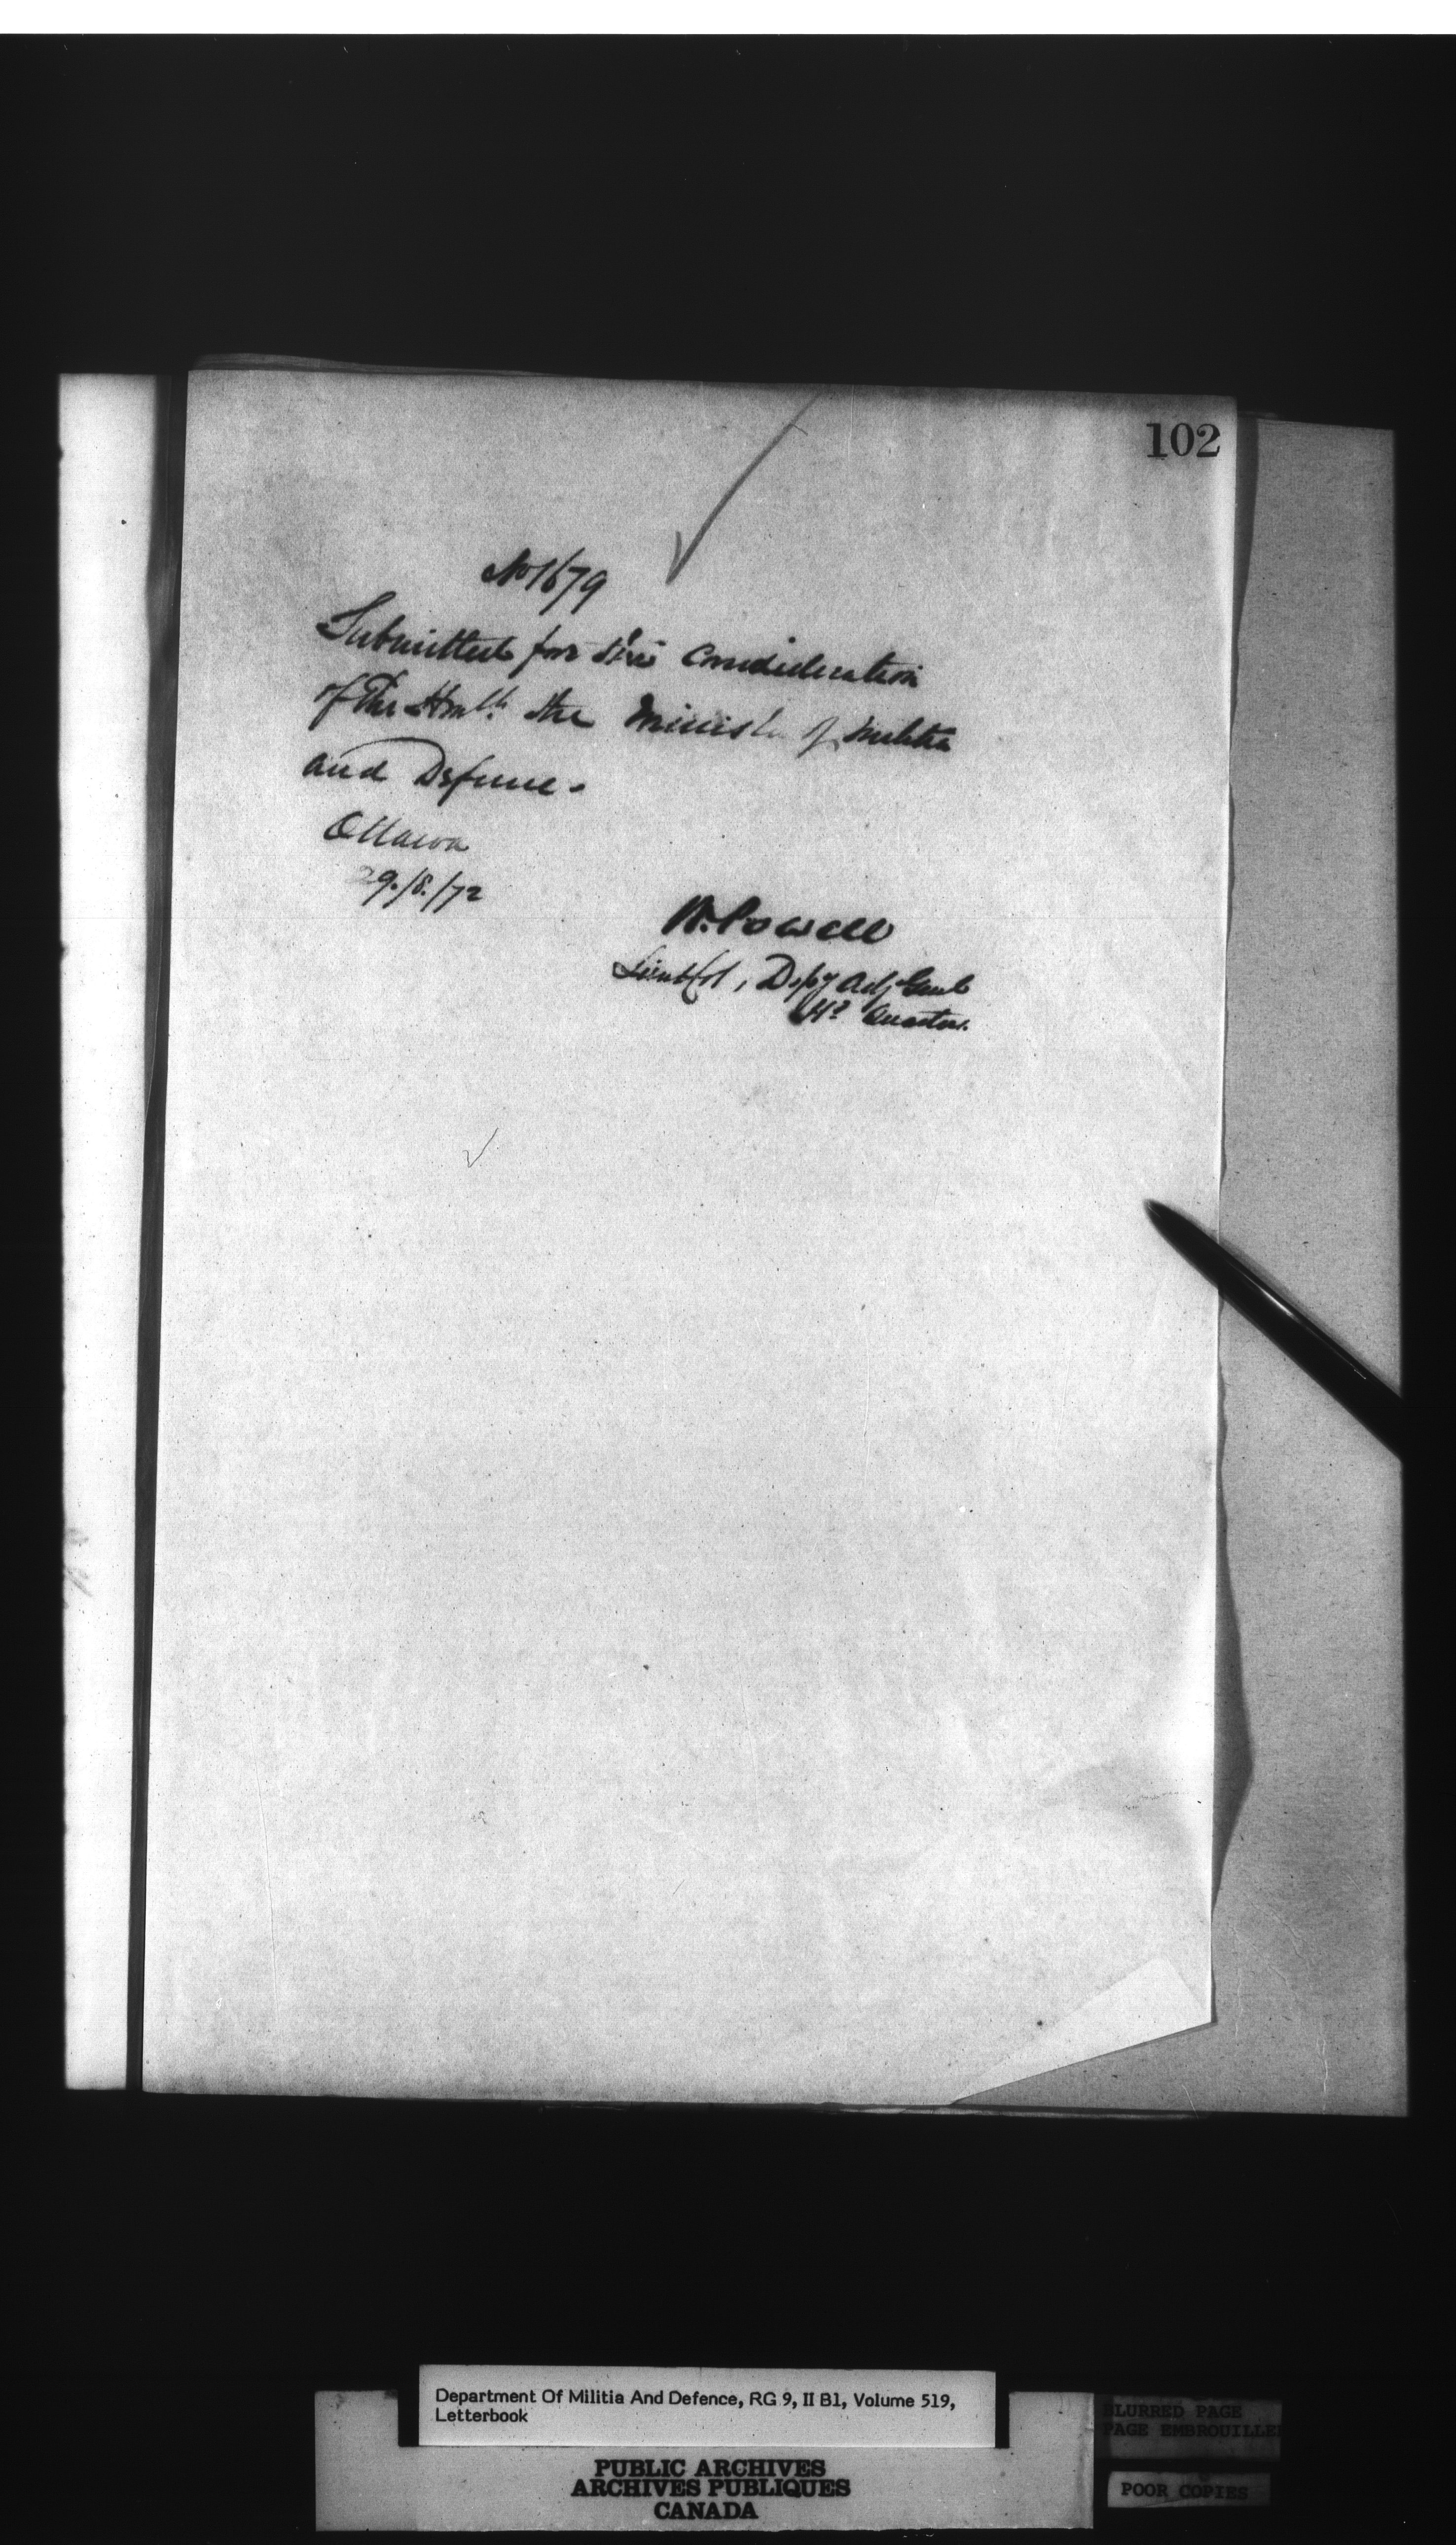 102
No 1679
Submitted for the consideration
of The Honble. the Minister of Militia
and Defence.
Ottawa
29./8./72
W. Powell
Lieut Col, Depy Adj Genl
Hd Quarters.
Department Of Militia And Defence, RG 9, II B1, Volume 519,
Letterbook
PUBLIC ARCHIVES
ARCHIVES PUBLIQUES
CANADA
BLURRED PAGE
PAGE EMBROUILLEE
POOR COPIES